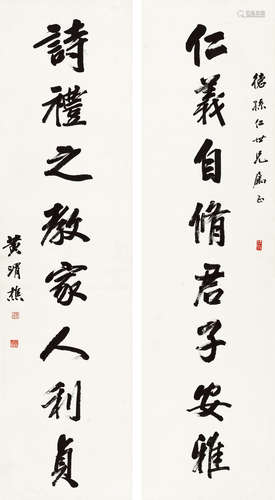 德孫仁世兄屬正
仁義自脩君子安雅
詩禮之教家人利貞
黃琄樵